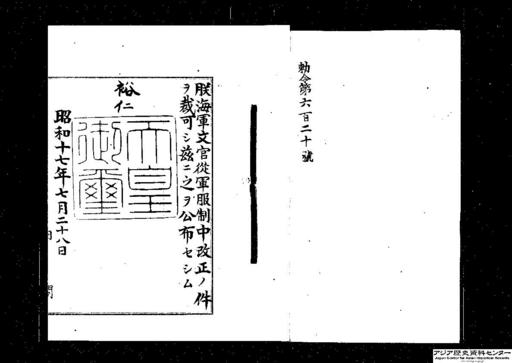 勅令第六百二十號
朕海軍文官從軍服制中改正ノ件
ヲ裁可シ茲ニ之ヲ公布セシム
裕仁
天皇
御璽
昭和十七年七月二十八日
アジア歴史資料センター
Japan Center for Asian Historical Records